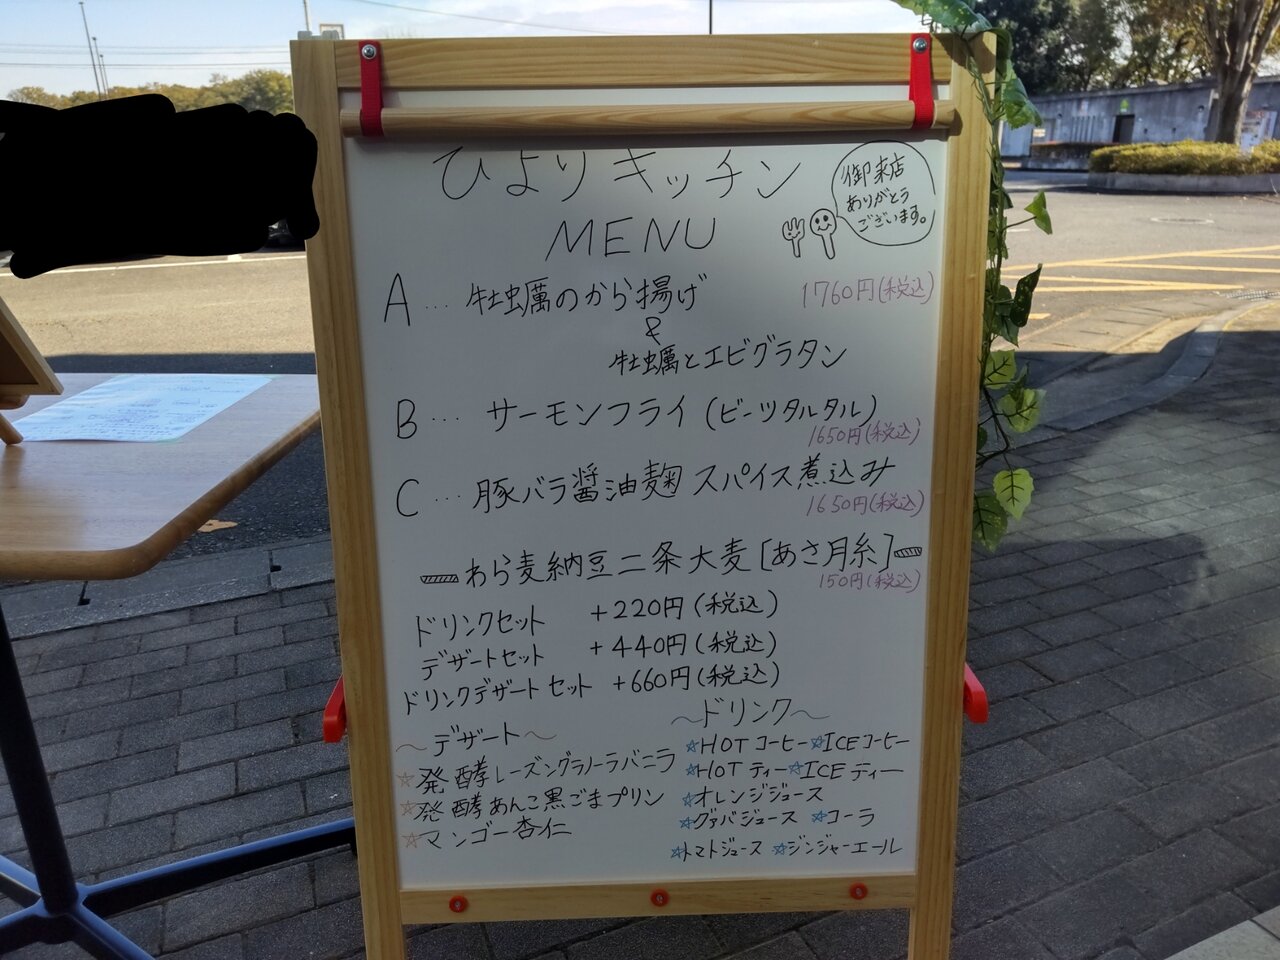 ひよりキッチン
MENU
御来店
ありがとう
ございます。
A … 牡蠣のから揚げ 1760円(税込)
&
牡蠣とエビグラタン
B … サーモンフライ (ビーツタルタル)
1650円(税込)
C … 豚バラ醤油麹 スパイス煮込み
1650円(税込)
わら麦納豆二条大麦[あさ月糸]
150円(税込)
ドリンクセット +220円(税込)
デザートセット +440円(税込)
ドリンクデザートセット +660円(税込)
〜デザート〜
☆発酵レーズングラノーラバニラ
☆発酵あんこ黒ごまプリン
☆マンゴー杏仁
〜ドリンク〜
☆HOTコーヒー ☆ICEコーヒー
☆HOTティー ☆ICEティー
☆オレンジジュース
☆グァバジュース ☆コーラ
☆トマトジュース ☆ジンジャーエール